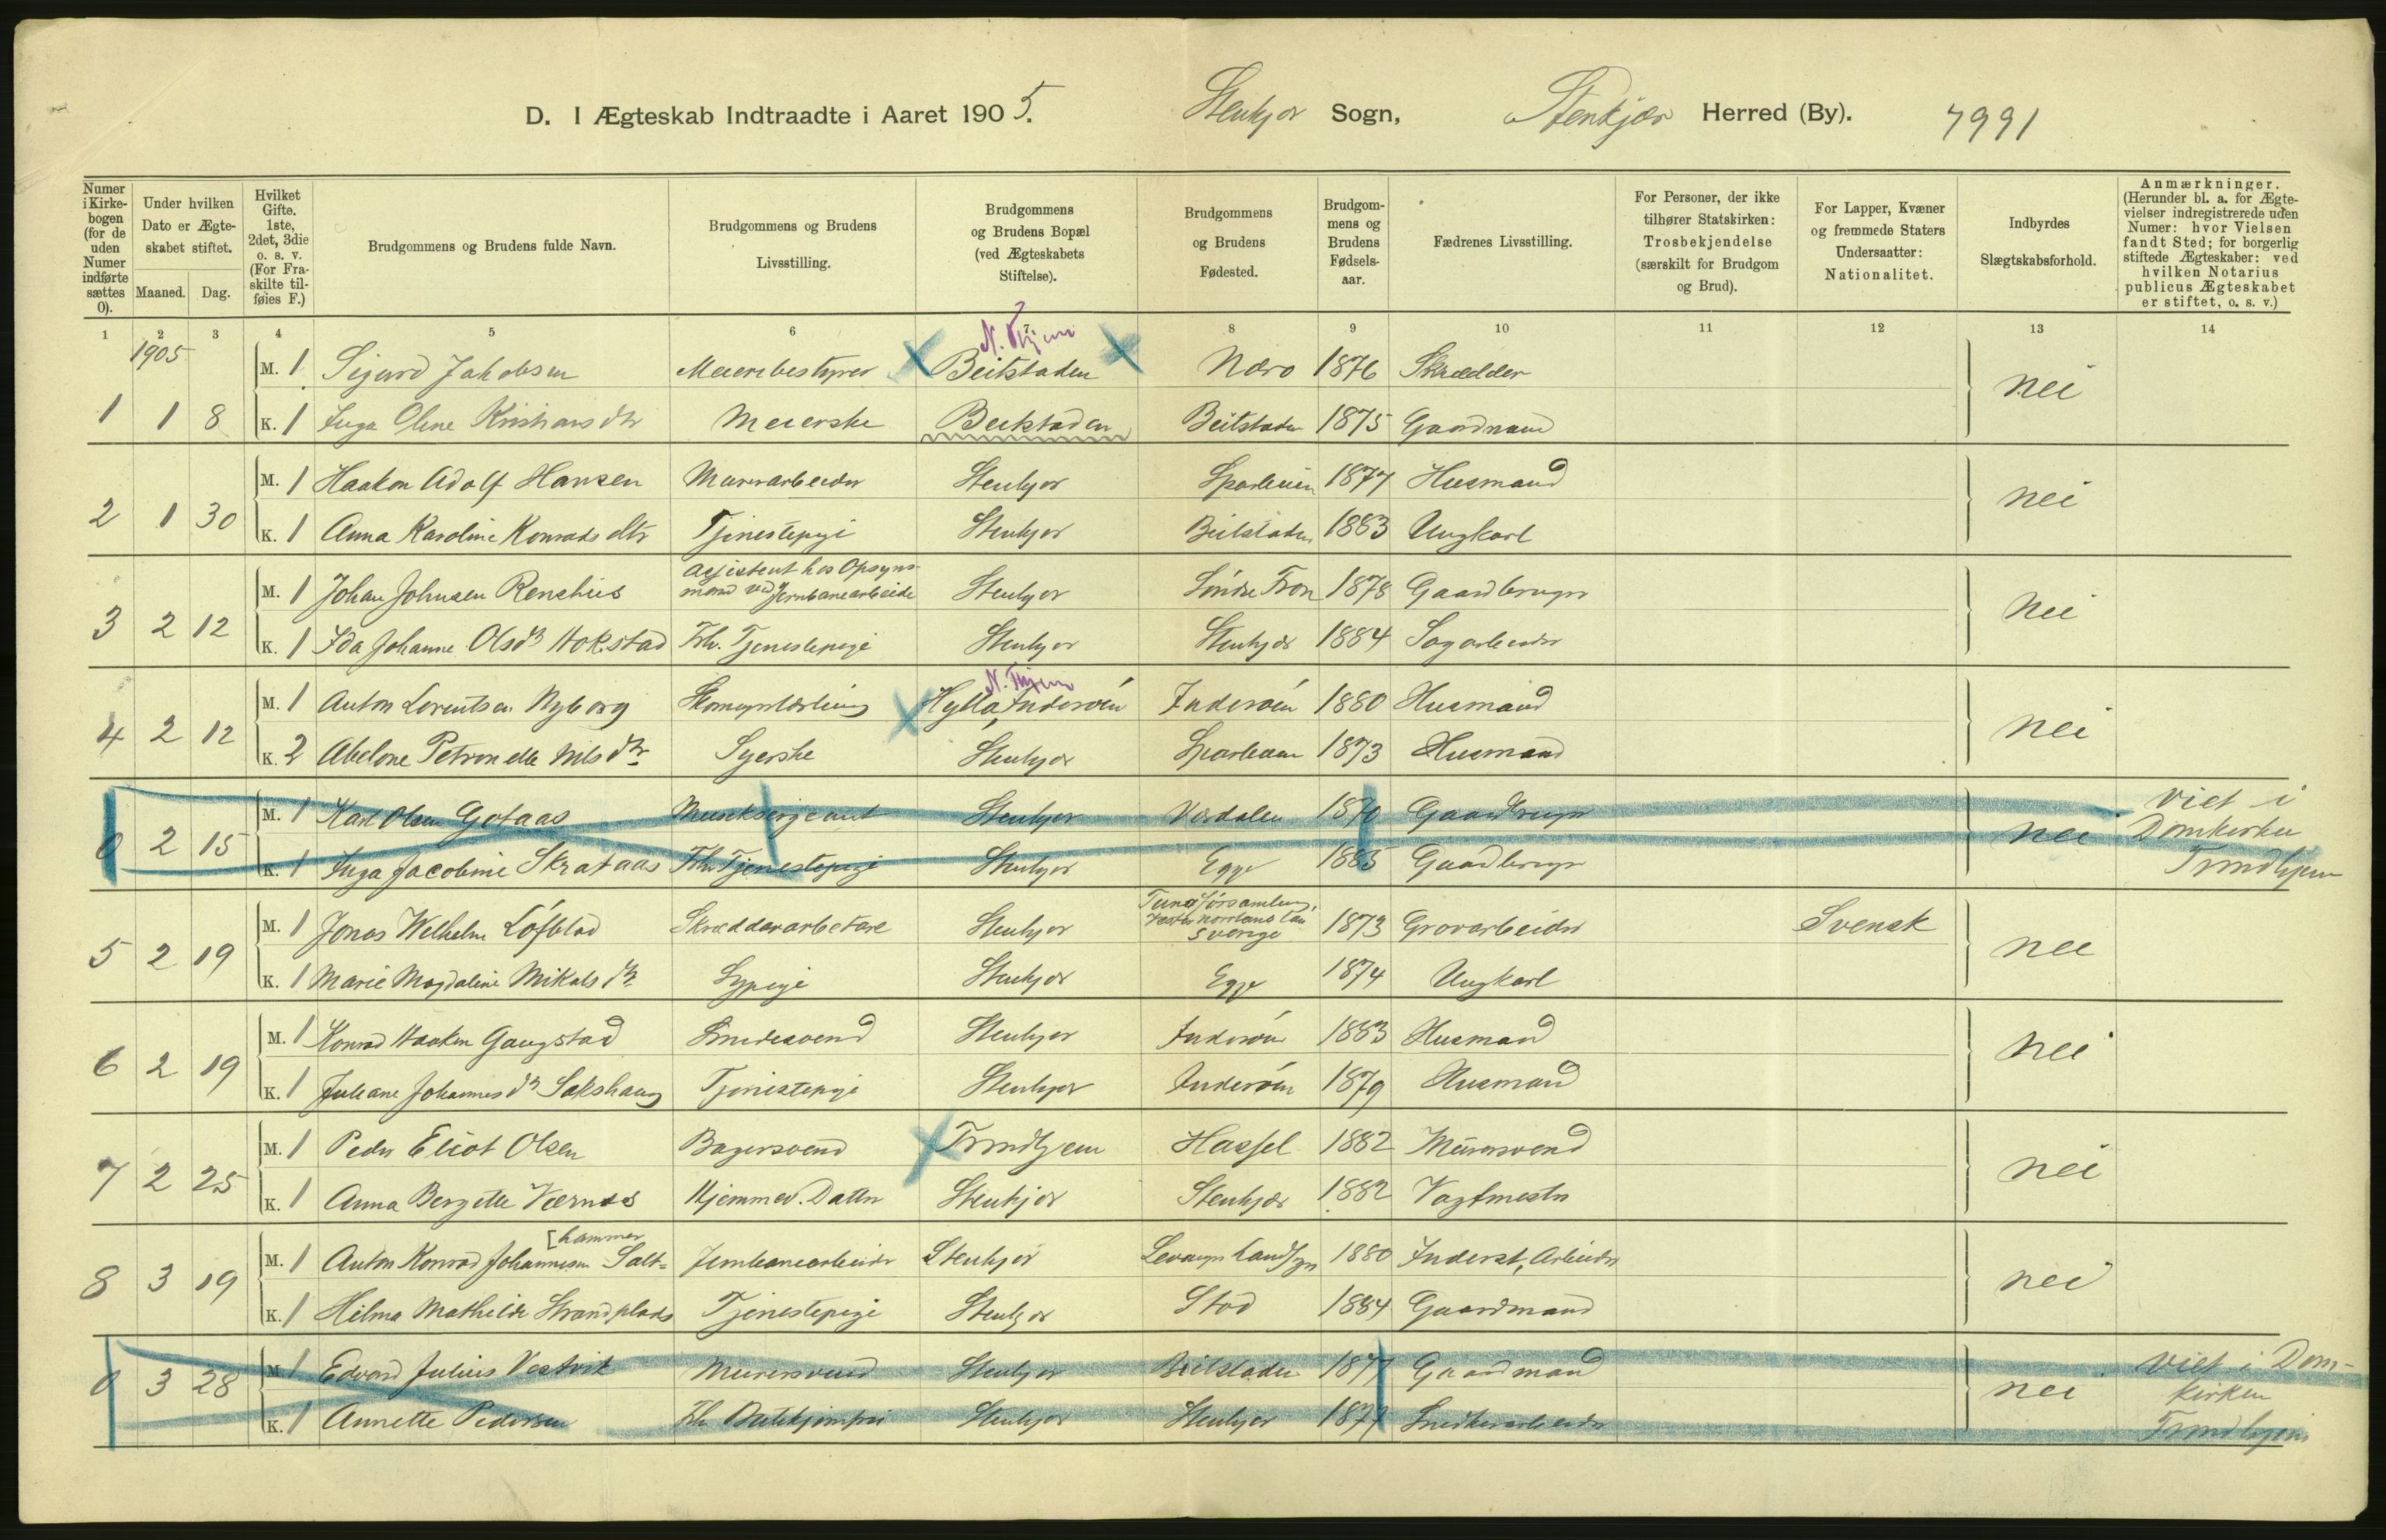 D. I Ægteskab Indtraadte i Aaret 1905. Stenkjær Sogn, Stenkjær Herred (By). 7991
Numer i Kirkebogen (for de uden Numer indførte sættes 0).
Under hvilken Dato er Ægteskabet stiftet.
Maaned. Dag.
Hvilket Gifte. 1ste, 2det, 3die o. s. v. (For Fraskilte tilføies F.)
Brudgommens og Brudens fulde Navn.
Brudgommens og Brudens Livsstilling.
Brudgommens og Brudens Bopæl (ved Ægteskabets Stiftelse).
Brudgommens og Brudens Fødested.
Brudgommens og Brudens Fødselsaar.
Fædrenes Livsstilling.
For Personer, der ikke tilhører Statskirken: Trosbekjendelse (særskilt for Brudgom og Brud).
For Lapper, Kvæner og fremmede Staters Undersaatter: Nationalitet.
Indbyrdes Slægtskabsforhold.
Anmærkninger. (Herunder bl. a. for Ægtevielser indregistrerede uden Numer: hvor Vielsen fandt Sted; for borgerlig stiftede Ægteskaber: ved hvilken Notarius publicus Ægteskabet er stiftet, o. s. v.)
1 2 3 4 5 6 7 8 9 10 11 12 13 14
1905
N. Thjem
M. 1 Sigurd Jakobsen Meieribestyrer Beitstaden Nærø 1876 Skrædder nei
1 1 8 K. 1 Inga Oline Kristiansdtr Meierske Beitstaden Beitstaden 1875 Gaardmand
M. 1 Haakon Adolf Hansen Murerarbeider Stenkjær Sparbuen 1877 Husmand nei
2 1 30 K. 1 Anna Karoline Konradsdtr Tjenestepige Stenkjær Beitstaden 1883 Ungkarl
M. 1 Johan Johnsen Renshus Assistent hos Opsynsmand ved Jernbanearbeide Stenkjær Søndre Fron 1878 Gaardbruger nei
3 2 12 K. 1 Ida Johanne Olsdtr Hokstad Fhv. Tjenestepige Stenkjær Stenkjær 1884 Sagarbeider
N. Thjem
M. 1 Anton Lorentsen Nyborg Skomagerlærling Hylla, Inderøen Inderøen 1880 Husmand nei
4 2 12 K. 2 Abelone Petronelle Nilsdtr Syerske Stenkjær Sparbuen 1873 Husmand
M. 1 Karl Olsen Gotaas Musiksergeant Stenkjær Værdalen 1870 Gaardbruger nei Viet i Domkirken Trondhjem
0 2 15 K. 1 Inga Jacobine Skrataas Fhv. Tjenestepige Stenkjær Egge 1885 Gaardbruger
M. 1 Jonas Wilhelm Löfblad Skreddararbetare Stenkjær Sverige 1873 Grovarbeider Svensk nei
5 2 19 K. 1 Marie Magdaline Mikalsdtr Sypige Stenkjær Egge 1874 Ungkarl
M. 1 Konrad Haakon Gangstad Smedesvend Stenkjær Inderøen 1883 Husmand nei
6 2 19 K. 1 Juliane Johannesdtr Sakshaug Tjenestepige Stenkjær Inderøen 1879 Husmand
M. 1 Peder Eliot Olsen Bagersvend Trondhjem Hassel 1882 Murersvend nei
7 2 25 K. 1 Anna Bergitte Værnes Hjemmev. Datter Stenkjær Stenkjær 1882 Vagtmester
[hammer
M. 1 Anton Konrad Johannesen Salt= Jernbanearbeider Stenkjær Levanger Landsgn 1880 Inderst, Arbeider nei
8 3 19 K. 1 Hilma Mathilde Strandplads Tjenestepige Stenkjær Stod 1884 Gaardmand
M. 1 Edvard Julius Vestvik Murersvend Stenkjær Beitstaden 1877 Gaardmand nei Viet i Domkirken Trondhjem
0 3 28 K. 1 Annette Pedersen Fhv. Butikjomfru Stenkjær Stenkjær 1877 Snedkerarbeider